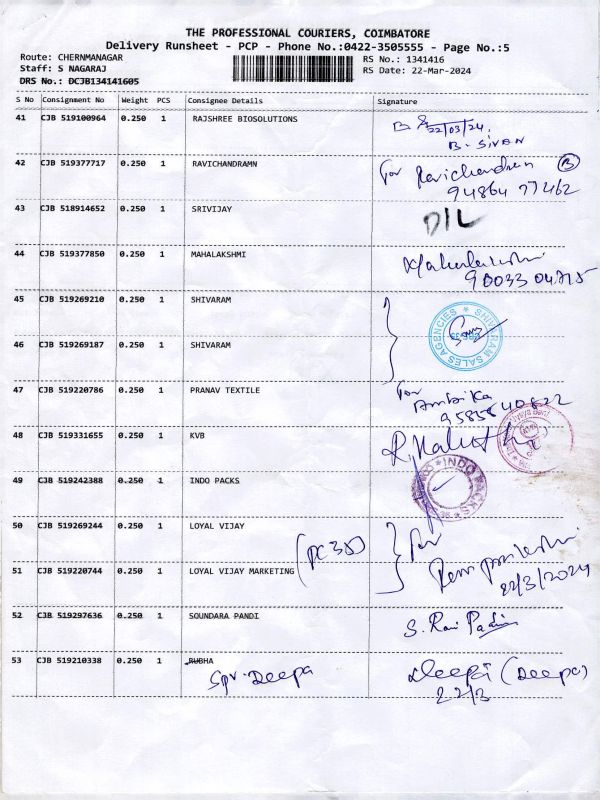 THE PROFESSIONAL COURIERS, COIMBATORE
Delivery Runsheet - PCP - Phone No.:0422-3505555 - Page No.:5
Route: CHERNMANAGAR
RS No.: 1341416
Staff: S NAGARAJ
RS Date: 22-Mar-2024
DRS No.: DCJB134141605
S No Consignment No Weight PCS Consignee Details Signature
41 CJB 519100964 0.250 1 RAJSHREE BIOSOLUTIONS
22/03/24,
B. SIVAN
42 CJB 519377717 0.250 1 RAVICHANDRAMN for Ravichandran B
94864 77462
43 CJB 518914652 0.250 1 SRIVIJAY D/L
44 CJB 519377850 0.250 1 MAHALAKSHMI Mahalakshmi
90033 04715
45 CJB 519269210 0.250 1 SHIVARAM
SHIVARAM SALES AGENCIES
46 CJB 519269187 0.250 1 SHIVARAM
47 CJB 519220786 0.250 1 PRANAV TEXTILE for
Ambika
95858 40822
48 CJB 519331655 0.250 1 KVB
49 CJB 519242388 0.250 1 INDO PACKS
INDO PACKS
50 CJB 519269244 0.250 1 LOYAL VIJAY for
51 CJB 519220744 0.250 1 LOYAL VIJAY MARKETING
22/3/2024
52 CJB 519297636 0.250 1 SOUNDARA PANDI S. Ravi
53 CJB 519210338 0.250 1 RUBHA Deepa (Deepa)
Spr. Deepa 22/3